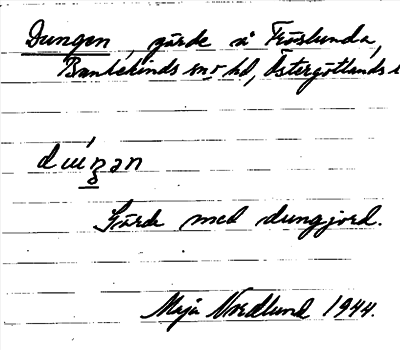 Dungen, gärde å Fröslunda,
Bankekinds sn o hd, Östergötlands
Gärde med dungjord.
Maja Nredlund 1944.